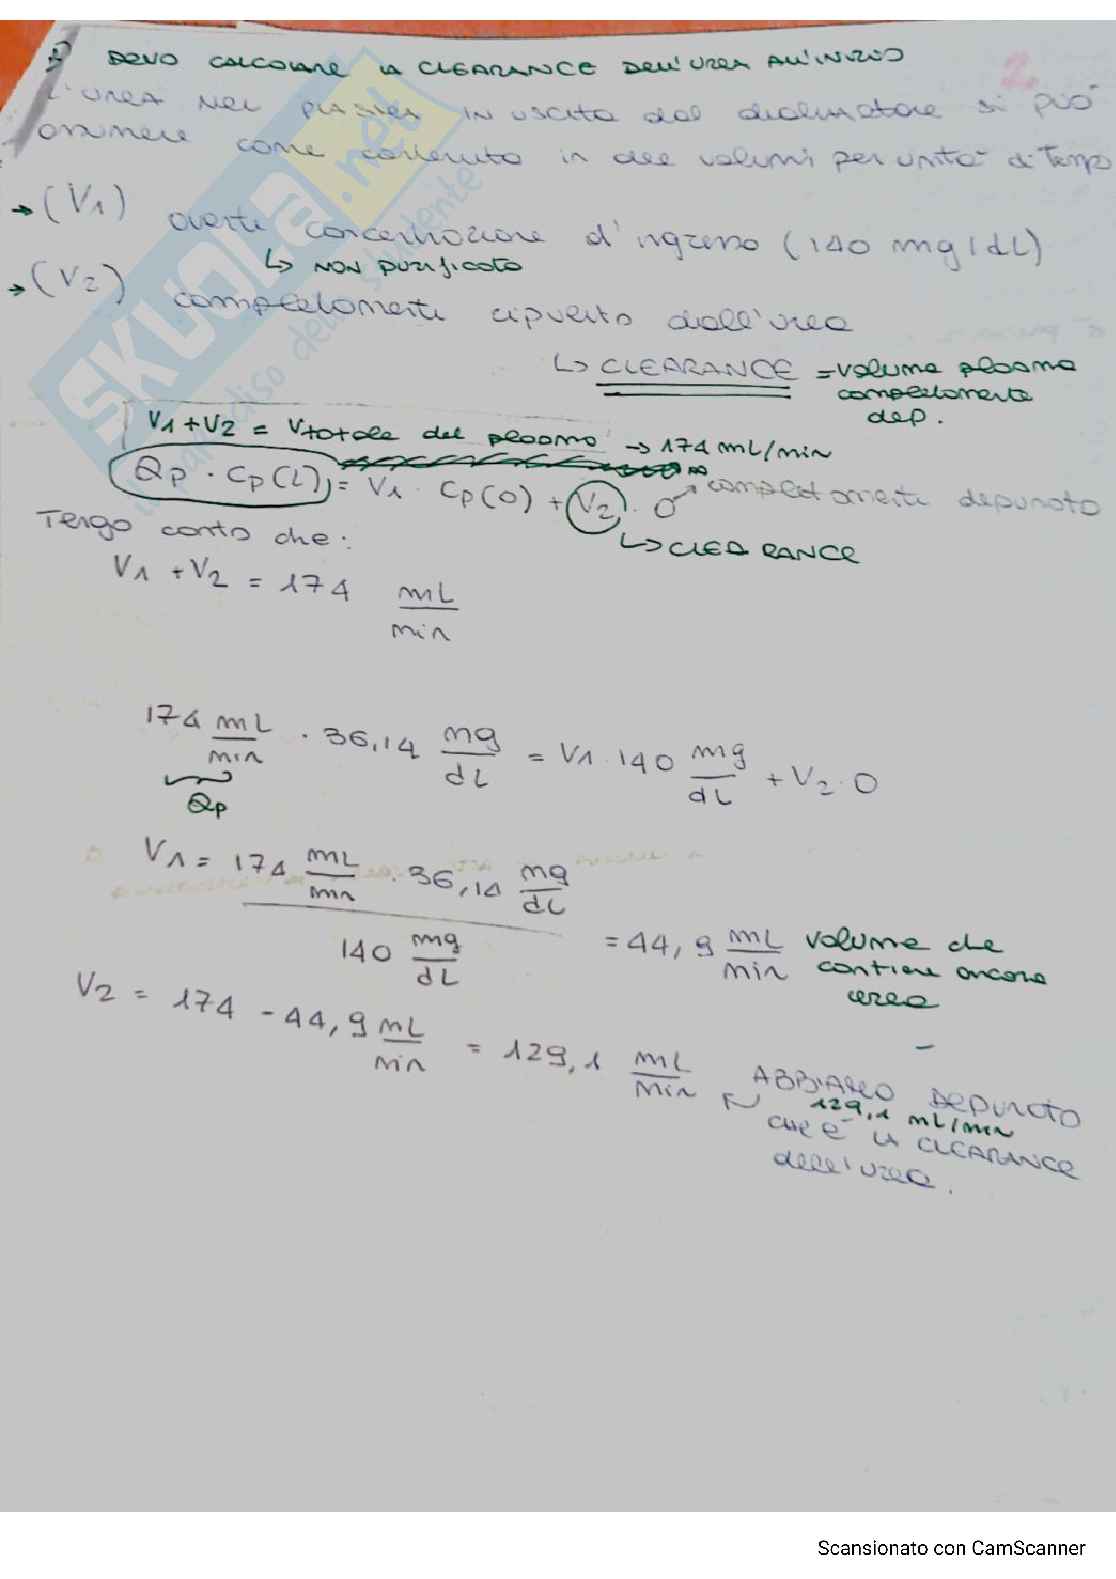 DEVO CALCOLARE LA CLEARANCE DELL'UREA ALL'INIZIO
2
L'UREA NEL PLASMA IN USCITA dal dializzatore si può
esprimere come contenuta in due volumi per unità di Tempo
→ (V1) avente concentrazione d'ingresso (140 mg/dL)
↳ NON purificato
→ (V2) completamente depurato dall'urea
↳ CLEARANCE = volume plasma
completamente
dep.
V1+V2 = Vtotale del plasma → 174 mL/min
Qp · Cp(L) = V1 · Cp(0) + V2 · 0 completamente depurato
↳ CLEARANCE
Tengo conto che:
V1 + V2 = 174 mL/min
174 mL/min · 36,14 mg/dL = V1 · 140 mg/dL + V2 · 0
Qp
V1 = 174 mL/min · 36,14 mg/dL
140 mg/dL
= 44,9 mL/min volume che
contiene ancora
urea
V2 = 174 - 44,9 mL/min = 129,1 mL/min ABBIAMO DEPURATO
129,1 mL/min
che è LA CLEARANCE
dell'urea.
SKUOLA.net
Scansionato con CamScanner